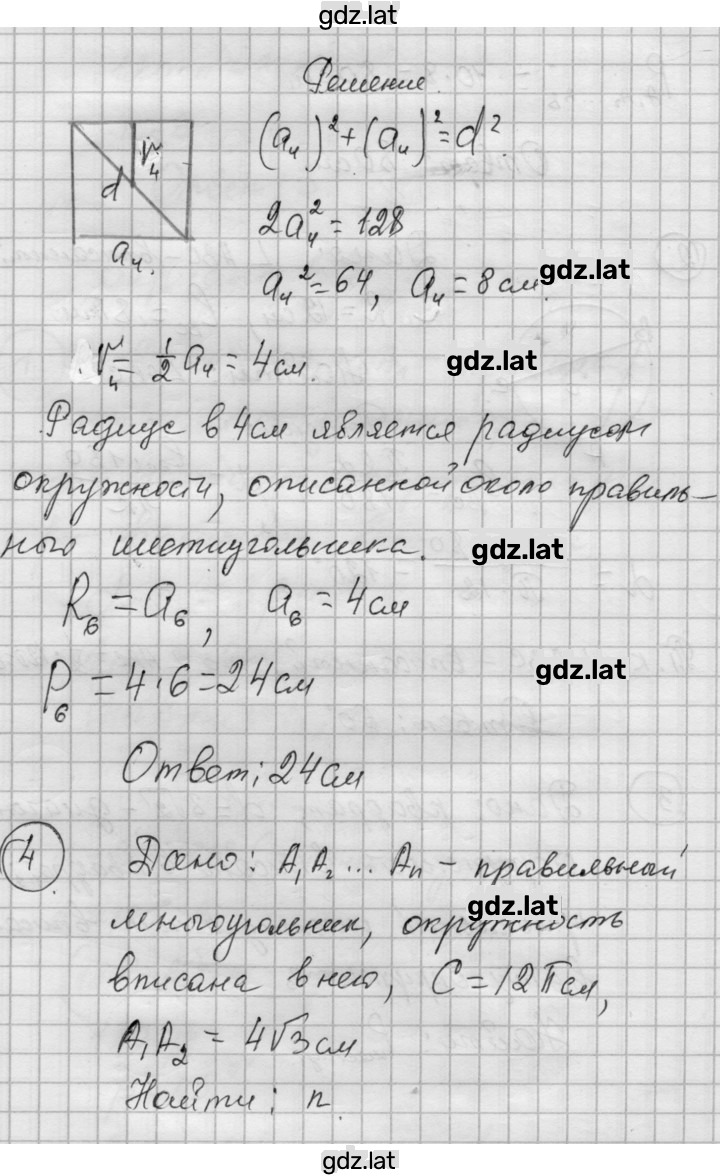 gdz.lat
Решение.
(a₄)² + (a₄)² = d²
r₄
d
a₄.
2a₄² = 128
a₄² = 64, a₄ = 8 см.
gdz.lat
r₄ = 1/2 a₄ = 4 см.
gdz.lat
Радиус в 4 см является радиусом
окружности, описанной около правиль-
ного шестиугольника.
gdz.lat
R₆ = a₆, a₆ = 4 см
P₆ = 4·6 = 24 см
gdz.lat
Ответ: 24 см
4 Дано: A₁A₂...Aₙ – правильный
многоугольник, окружность
gdz.lat
вписана в него, C = 12π см,
A₁A₂ = 4√3 см
Найти: n.
gdz.lat